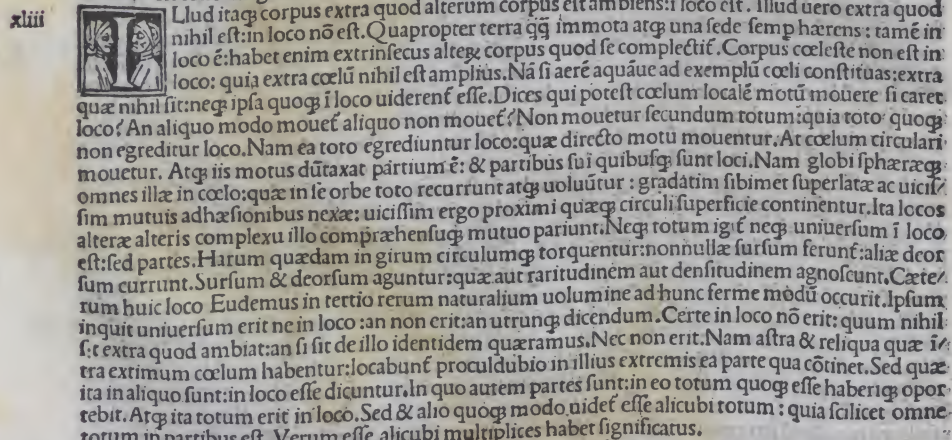 xliii
ILlud itaqꝫ corpus extra quod alterum corpus est ambiens: ī loco est. Illud uero extra quod
nihil est: in loco nō est. Quapropter terra q̄q̄ immota atqꝫ una sede semp hærens: tamē in
loco ē: habet enim extrinsecus alteꝝ corpus quod se complectit̄. Corpus cœleste non est in
loco: quia extra cœlū nihil est amplius. Nā si aerē aquāue ad exemplū cœli constituas: extra
quæ nihil sit: neqꝫ ipsa quoqꝫ ī loco uiderent̄ esse. Dices qui potest cœlum localē motū mouere si caret
loco? An aliquo modo mouet̄ aliquo non mouet̄? Non mouetur secundum totum: quia toto quoqꝫ
non egreditur loco. Nam ea toto egrediuntur loco: quæ directo motu mouentur. At cœlum circulari
mouetur. Atqꝫ iis motus dūtaxat partium ē: & partibus sui quibusqꝫ sunt loci. Nam globi sphæræqꝫ
omnes illæ in cœlo: quæ in se orbe toto recurrunt atqꝫ uoluūtur: gradatim sibimet superlatæ ac uicis⸗
sim mutuis adhæsionibus nexæ: uicissim ergo proximi quæqꝫ circuli superficie continentur. Ita locos
alteræ alteris complexu illo compræhensuqꝫ mutuo pariunt. Neqꝫ totum igit̄ neqꝫ uniuersum ī loco
est: sed partes. Harum quædam in girum circulumqꝫ torquentur: nonnullæ sursum ferunt̄: aliæ deor
sum currunt. Sursum & deorsum aguntur: quæ aut raritudinem aut densitudinem agnoscunt. Cæte⸗
rum huic loco Eudemus in tertio rerum naturalium uolumine ad hunc ferme modū occurit. Ipsum
inquit uniuersum erit ne in loco: an non erit: an utrunqꝫ dicendum. Certe in loco nō erit: quum nihil
sit extra quod ambiat: an si sit de illo identidem quæramus. Nec non erit. Nam astra & reliqua quæ ī⸗
tra extimum cœlum habentur: locabunt̄ proculdubio in illius extremis ea parte qua cōtinet. Sed quæ
ita in aliquo sunt: in loco esse dicuntur. In quo autem partes sunt: in eo totum quoqꝫ esse haberiqꝫ opor
tebit. Atqꝫ ita totum erit in loco. Sed & alio quoqꝫ modo uidet̄ esse alicubi totum: quia scilicet omne
totum in partibus est. Verum esse alicubi multiplices habet significatus.